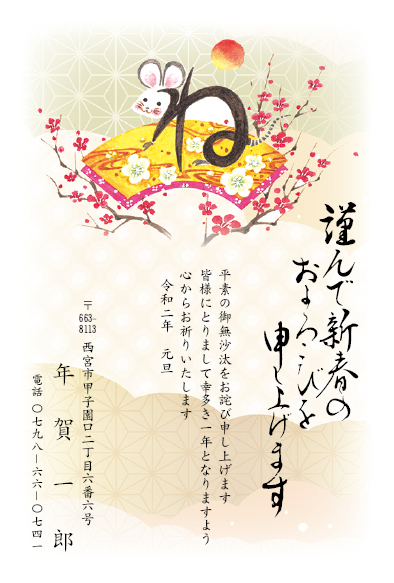 ね
謹んで新春の
およろこびを
申し上げます
平素の御無沙汰をお詫び申し上げます
皆様にとりまして幸多き一年となりますよう
心からお祈りいたします
令和二年 元旦
〒663-8113
西宮市甲子園口二丁目六番六号
年賀一郎
電話 〇七九八―六六―〇七四一